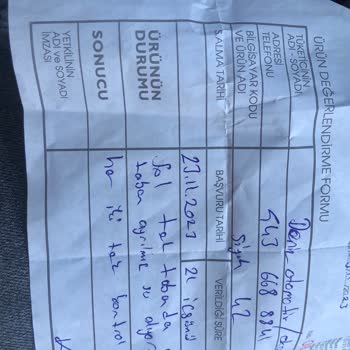 ÜRÜN DEĞERLENDİRME FORMU
TÜKETİCİNİN
ADI - SOYADI
Deniz otomotiv /
ADRESİ
TELEFONU
443 668 8841
BİLGİSAYAR KODU
VE ÜRÜN ADI
Siyah 42
S ALMA TARİHİ
BAŞVURU TARİHİ
VERİLDİĞİ SÜRE
23.11.2023
21 iş günü
ÜRÜNÜN
DURUMU
Sol tek tabanda
taban ayrılma su alıyor
SONUCU
her iki tek kontrol
YETKİLİNİN
ADI ve SOYADI
İMZASI